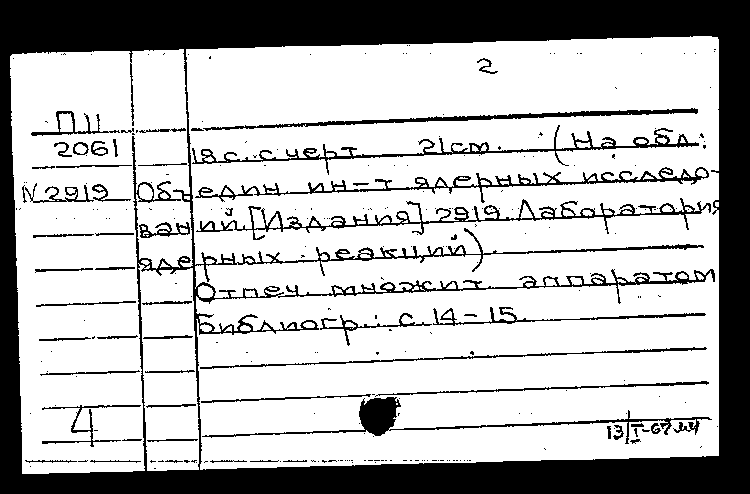 2
П 11
2061 18 с. с черт 21 см. (На обл:
N 2919 Объедин. ин-т ядерных исследо-
ваний. [Издания] 2919. Лаборатория
ядерных реакций).
Отпеч. множит. аппаратом
Библиогр.: с. 14-15.
4
13/I-67